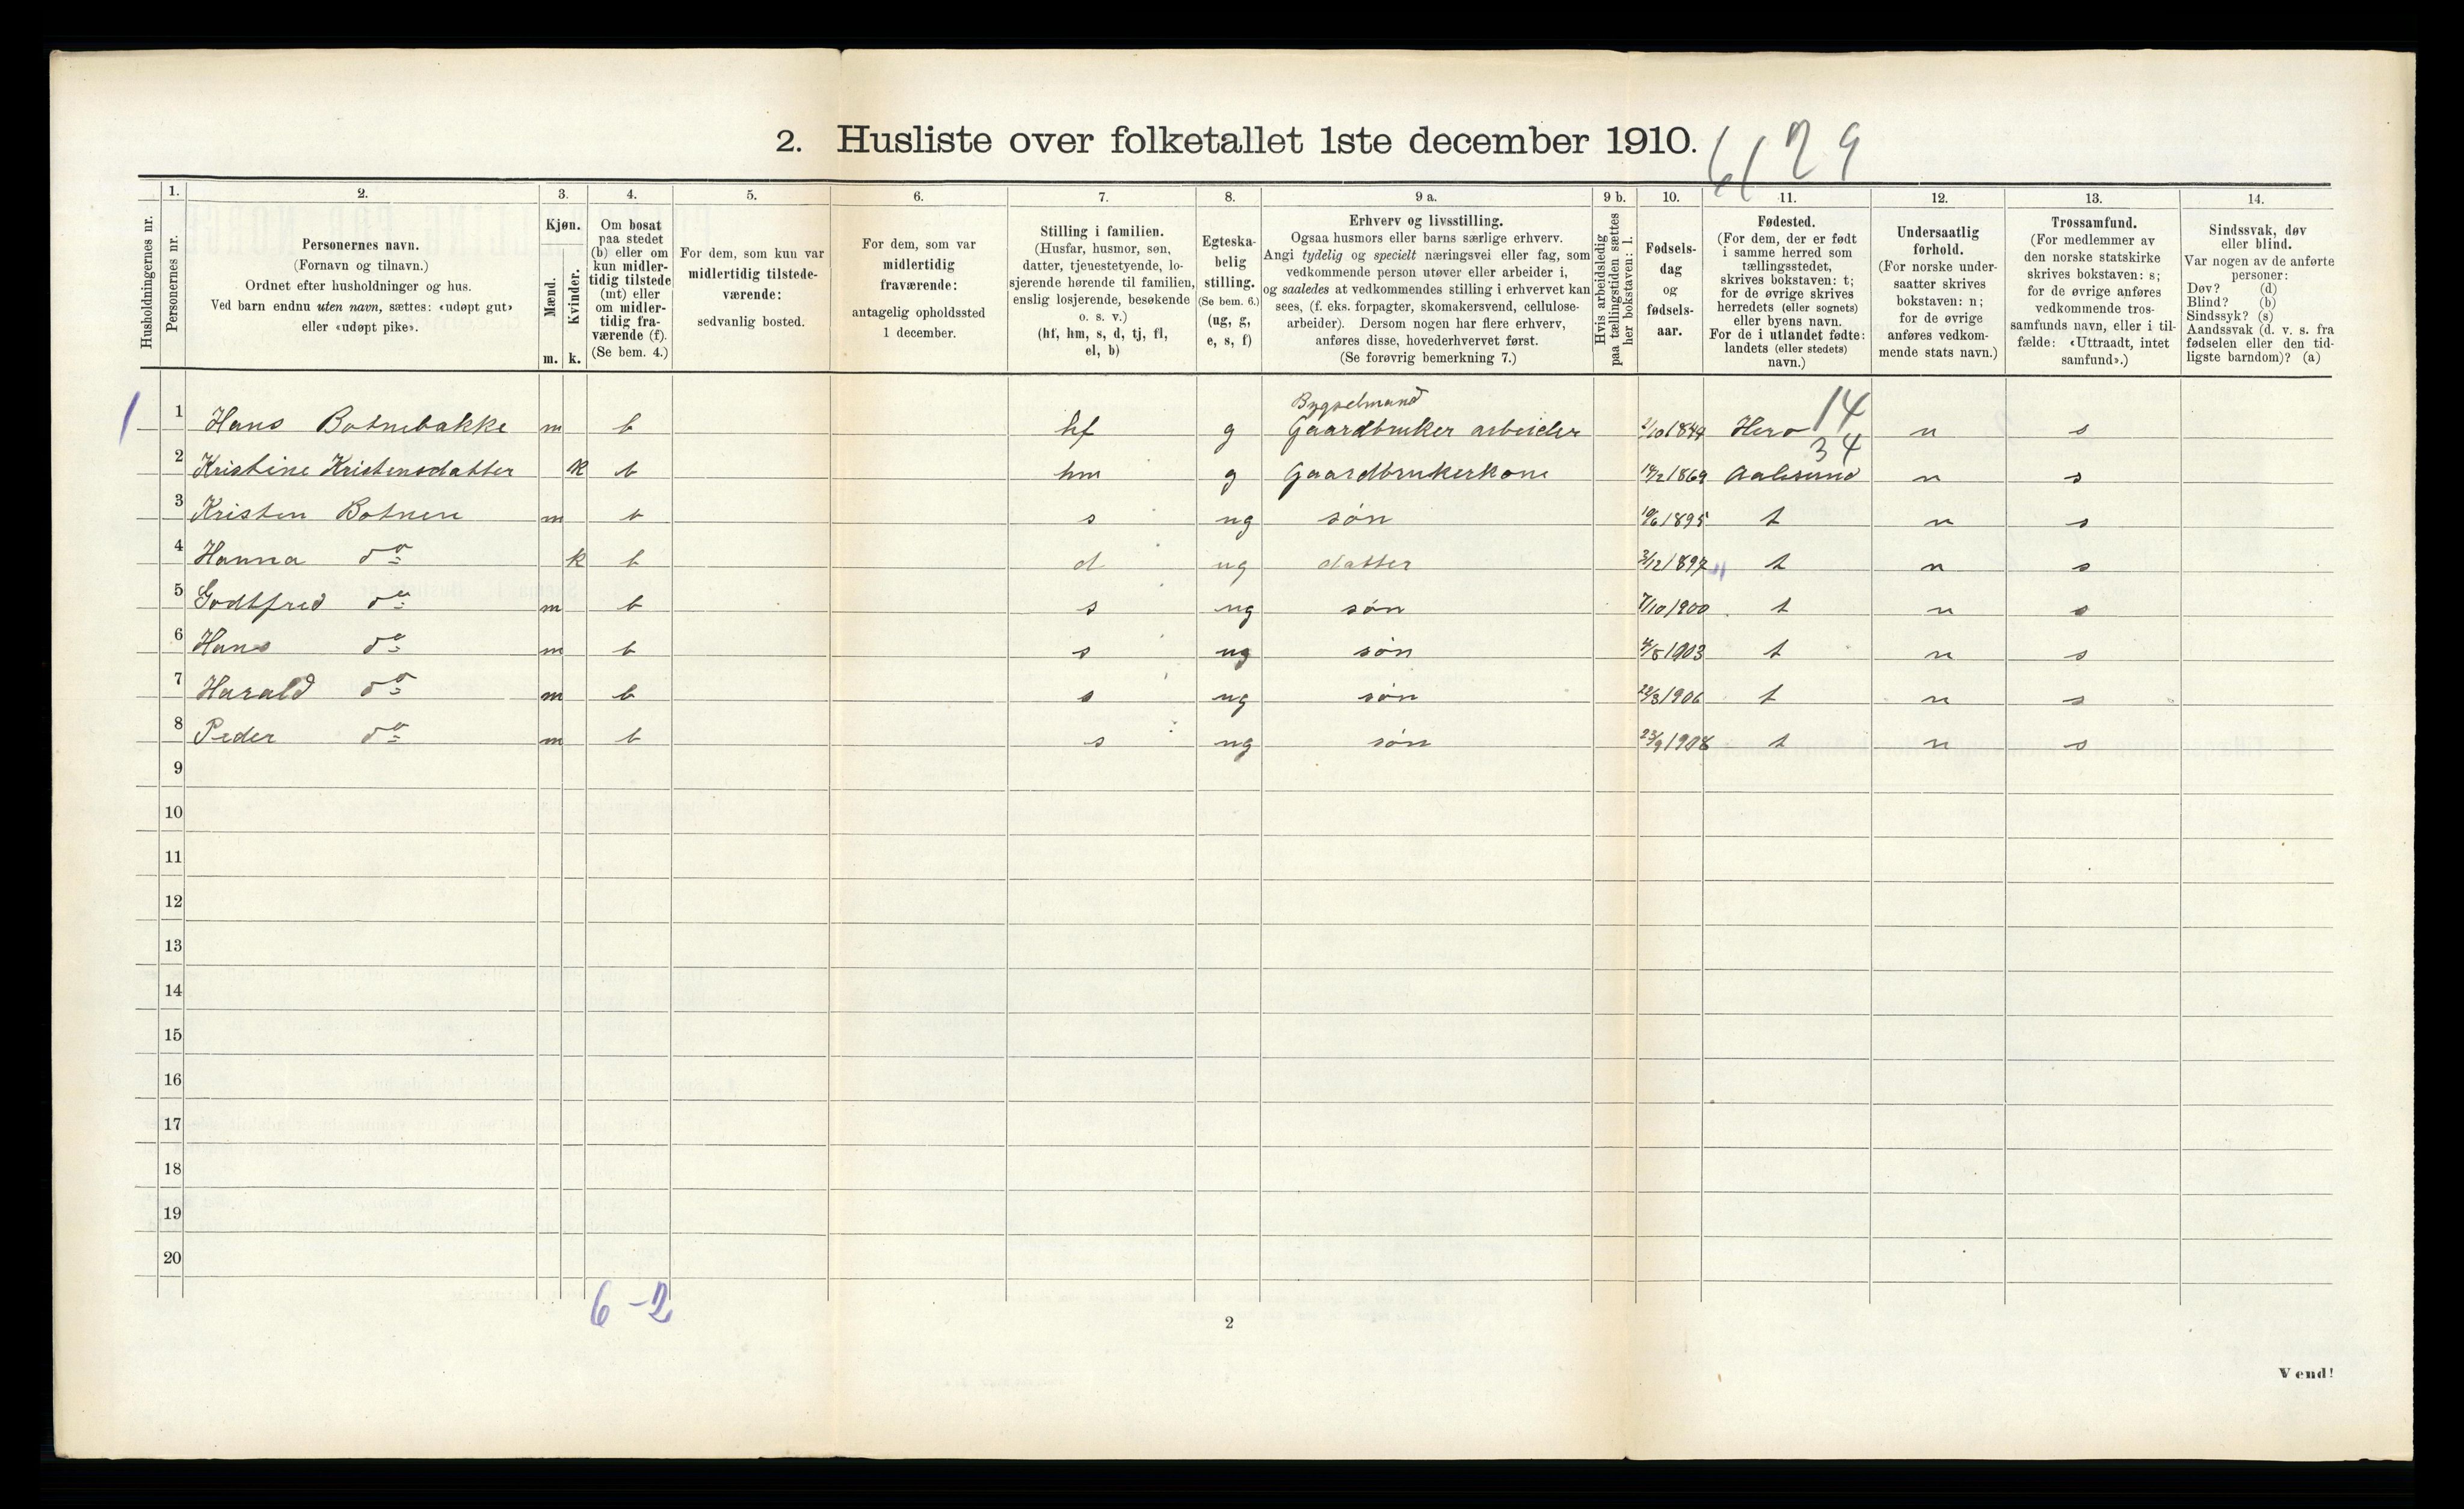 2. Husliste over folketallet 1ste december 1910.
6/ 29
Husholdningernes nr.
1.
Personernes nr.
2.
Personernes navn.
(Fornavn og tilnavn.)
Ordnet efter husholdninger og hus.
Ved barn endnu uten navn, sættes: «udøpt gut»
eller «udøpt pike».
3.
Kjøn.
Mænd.
Kvinder.
m. k.
4.
Om bosat
paa stedet
(b) eller om
kun midler-
tidig tilstede
(mt) eller
om midler-
tidig fra-
værende (f).
(Se bem. 4.)
5.
For dem, som kun var
midlertidig tilstede-
værende:
sedvanlig bosted.
6.
For dem, som var
midlertidig
fraværende:
antagelig opholdssted
1 december.
7.
Stilling i familien.
(Husfar, husmor, søn,
datter, tjenestetyende, lo-
sjerende hørende til familien,
enslig losjerende, besøkende
o. s. v.)
(hf, hm, s, d, tj, fl,
el, b)
8.
Egteska-
belig
stilling.
(Se bem. 6.)
(ug, g,
e, s, f)
9 a.
Erhverv og livsstilling.
Ogsaa husmors eller barns særlige erhverv.
Angi tydelig og specielt næringsvei eller fag, som
vedkommende person utøver eller arbeider i,
og saaledes at vedkommendes stilling i erhvervet kan
sees, (f. eks. forpagter, skomakersvend, cellulose-
arbeider). Dersom nogen har flere erhverv,
anføres disse, hovederhvervet først.
(Se forøvrig bemerkning 7.)
9 b.
Hvis arbeidsledig
paa tællingstiden sættes
her bokstaven: l.
10.
Fødsels-
dag
og
fødsels-
aar.
11.
Fødested.
(For dem, der er født
i samme herred som
tællingsstedet,
skrives bokstaven: t;
for de øvrige skrives
herredets (eller sognets)
eller byens navn.
For de i utlandet fødte:
landets (eller stedets)
navn.)
12.
Undersaatlig
forhold.
(For norske under-
saatter skrives
bokstaven: n;
for de øvrige
anføres vedkom-
mende stats navn.)
13.
Trossamfund.
(For medlemmer av
den norske statskirke
skrives bokstaven: s;
for de øvrige anføres
vedkommende tros-
samfunds navn, eller i til-
fælde: «Uttraadt, intet
samfund».)
14.
Sindssvak, døv
eller blind.
Var nogen av de anførte
personer:
Døv? (d)
Blind? (b)
Sindssyk? (s)
Aandssvak (d. v. s. fra
fødselen eller den tid-
ligste barndom)? (a)
Bygselmand 14
1 1 Hans Botnebakke m b hf g Gaardbruker arbeider Hero n s
34
2 Kristine Kristensdatter k b hm g Gaardbrukerkone Aalesund n s
3 Kristen Botnen m b s ug søn 19/6 1895 t n s
4 Hanna do k b d ug datter 3/12 1897 t n s
5 Godtfred do m b s ug søn 7/10 1900 t n s
6 Hans do m b s ug søn 4/8 1903 t n s
7 Harald do m b s ug søn 22/8 1906 t n s
8 Peder do m b s ug søn 23/9 1908 t n s
9
10
11
12
13
14
15
16
17
18
19
20
6 - 2
2
Vend!